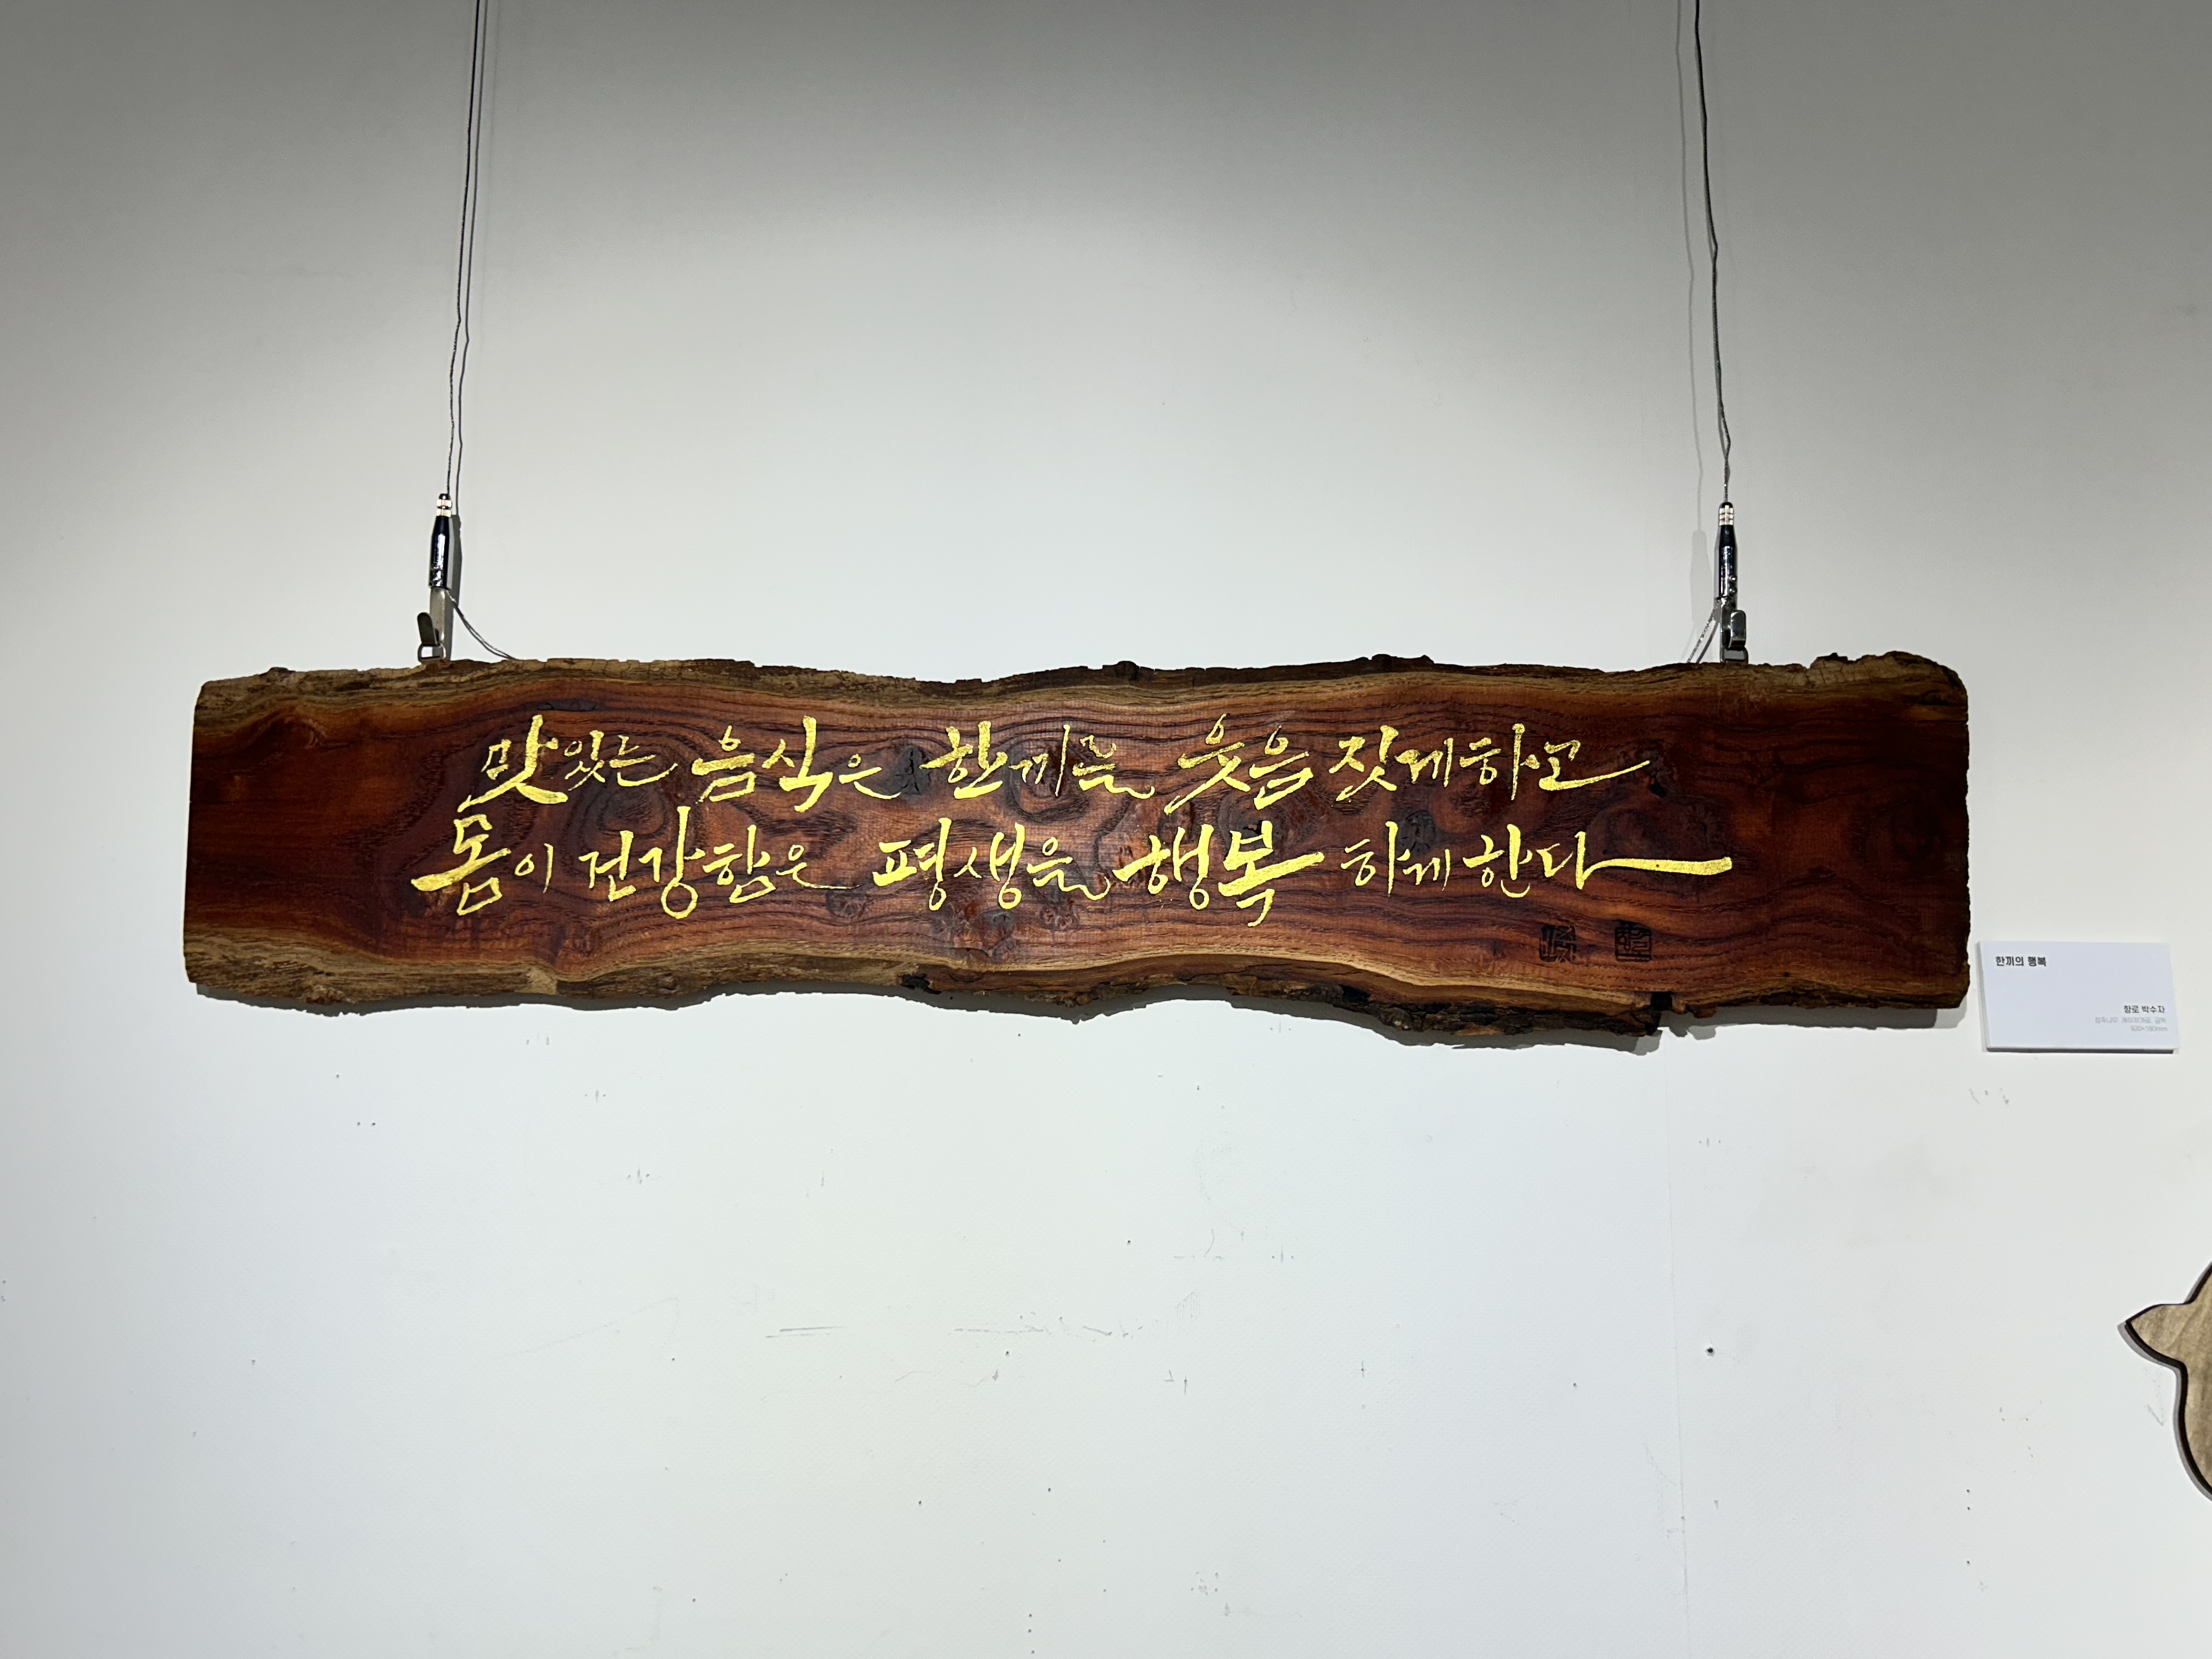 맛있는 음식은 한끼를 웃음 짓게하고
몸이 건강함은 평생을 행복 하게 한다
한끼의 행복
향로 박수자